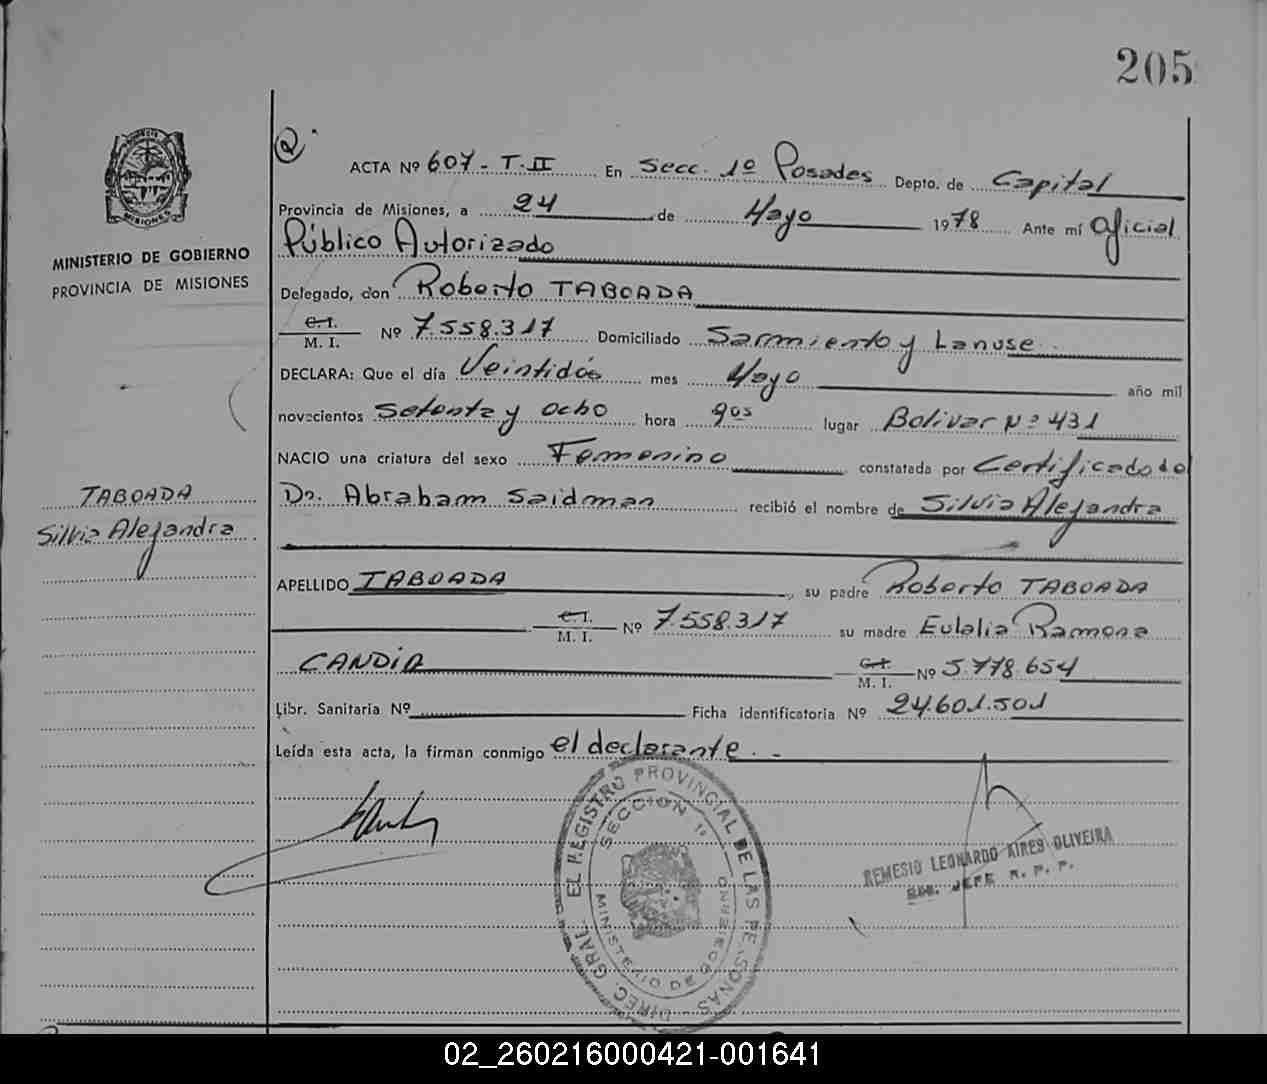 205
MINISTERIO DE GOBIERNO
PROVINCIA DE MISIONES
ACTA Nº 607 - T. II En Secc. 1º Posadas Depto. de Capital
Provincia de Misiones, a 24 de Mayo 1978 Ante mí Oficial
Público Autorizado
Delegado, don Roberto TABOADA
C. I.
M. I. Nº 7.558.317 Domiciliado Sarmiento y Lanuse
DECLARA: Que el día Veintidós mes Mayo año mil
novecientos Setenta y ocho hora 9 05 lugar Bolivar Nº 431
NACIO una criatura del sexo Femenino constatada por Certificado
Dr. Abraham Saidman recibió el nombre de Silvia Alejandra
TABOADA
Silvia Alejandra
APELLIDO TABOADA, su padre Roberto TABOADA
C. I.
M. I. Nº 7.558.317 su madre Eulalia Ramona
CANDIA C. I.
M. I. Nº 5.778.654
Libr. Sanitaria Nº Ficha identificatoria Nº 24.601.501
Leída esta acta, la firman conmigo el declarante. -
DIREC. GRAL. EL REGISTRO PROVINCIAL DE LAS PERSONAS
SECCION 1º
MINISTERIO DE GOBIERNO
REMESIO LEONARDO AIRES OLIVEIRA
JEFE R. P. P.
02_260216000421-001641